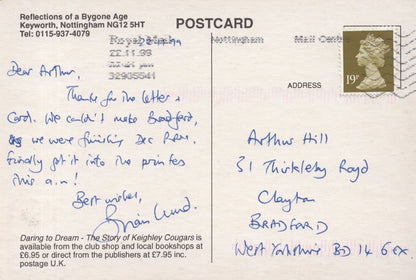 Reflections of a Bygone Age
Keyworth, Nottingham NG12 5HT
Tel: 0115-937-4079
POSTCARD
Royal Mail
Nottingham
Mail Centre
22.11.99
22.11.99
32935541
19
ADDRESS
Dear Arthur,
Thanks for the letter &
Card. We couldn't make Bradford,
as we were finishing Dec P.P.M.
Finally got it into the printers
this a.m!
Best wishes,
Brian Lund.
Arthur Hill
31 Thirkleby Royd
Clayton
BRADFORD
West Yorkshire BD14 6EX
Daring to Dream - The Story of Keighley Cougars is
available from the club shop and local bookshops at
£6.95 or direct from the publishers at £7.95 inc.
postage U.K.